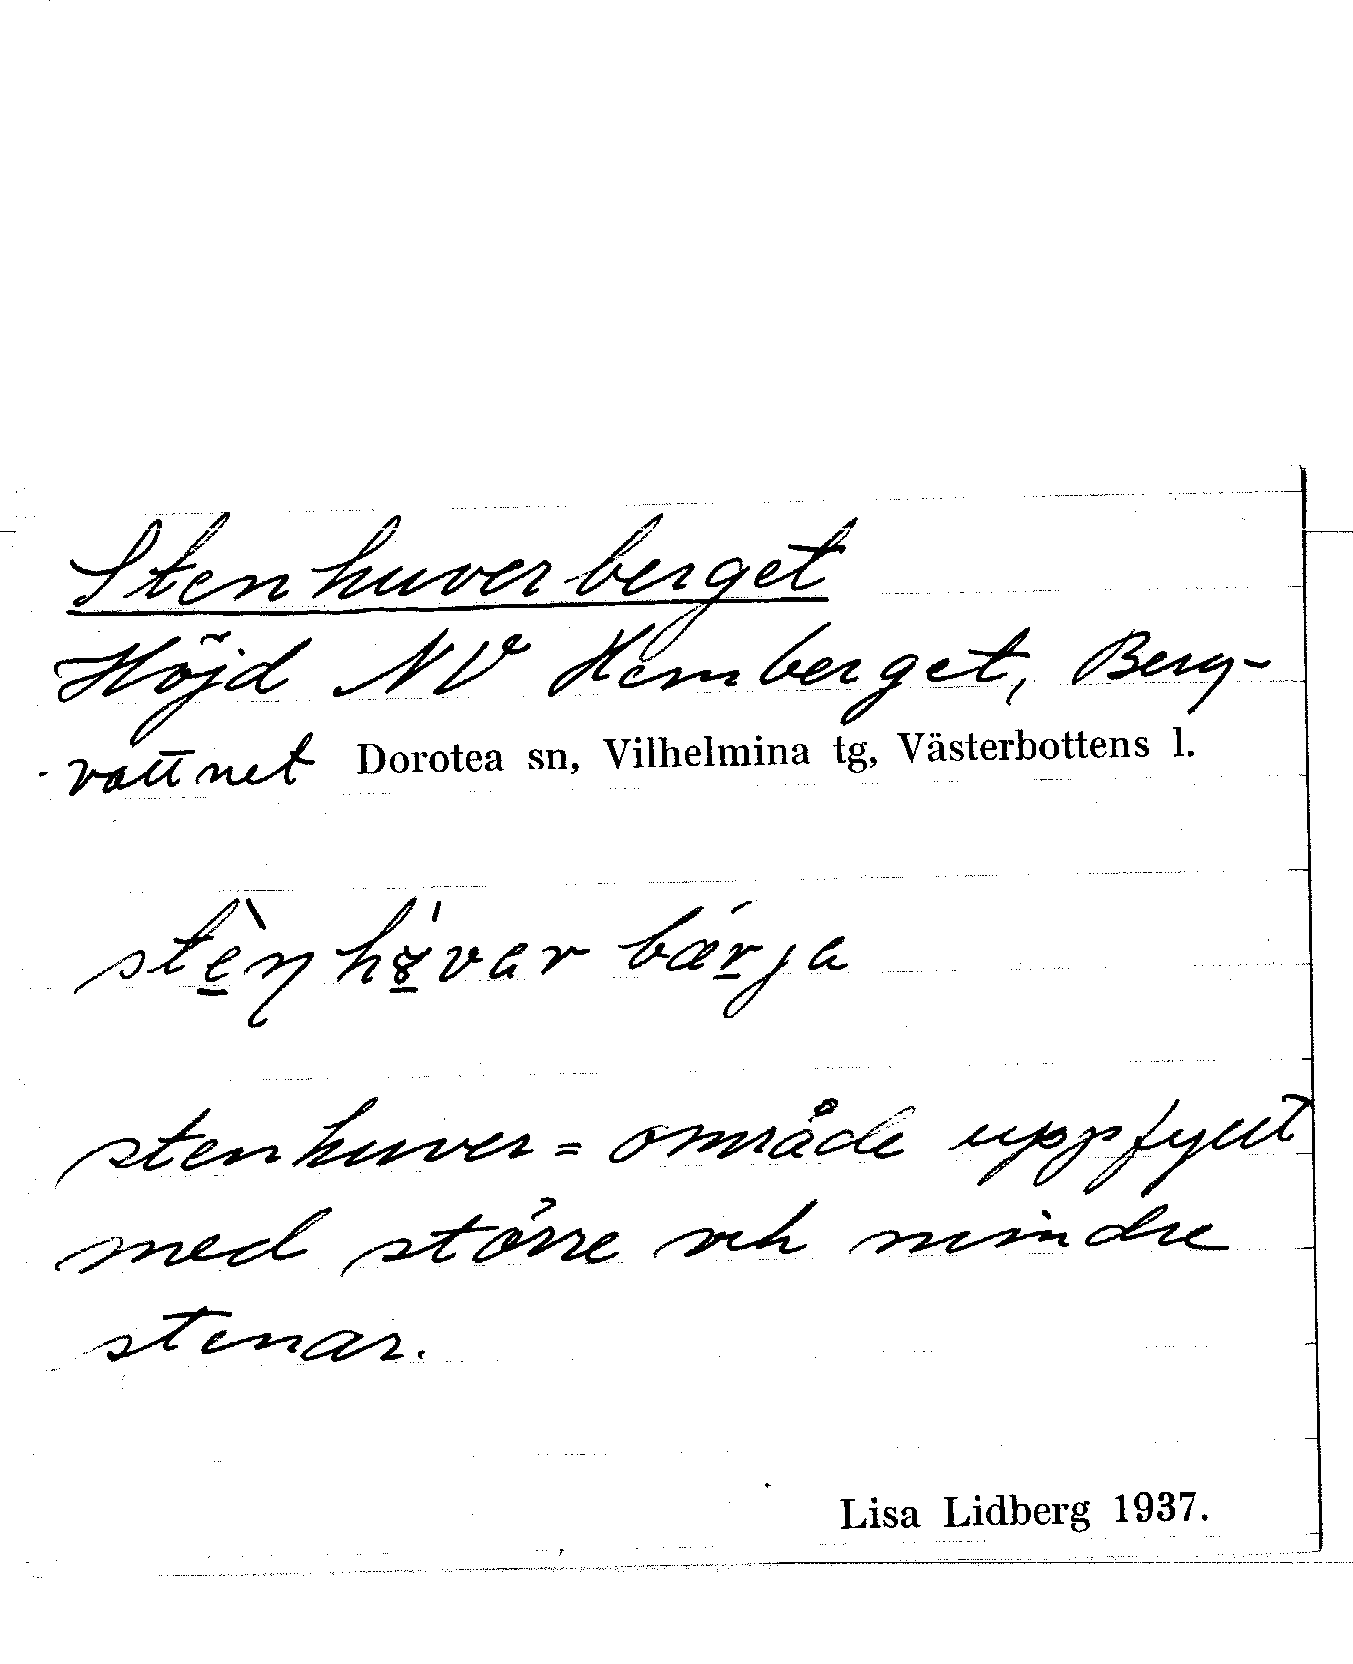 Stenhuverberget
Höjd NV Hemberget, Berg-
vattnet Dorotea sn, Vilhelmina tg, Västerbottens l.
stenhuver = område uppfyllt
med större och mindre
stenar.
Lisa Lidberg 1937.